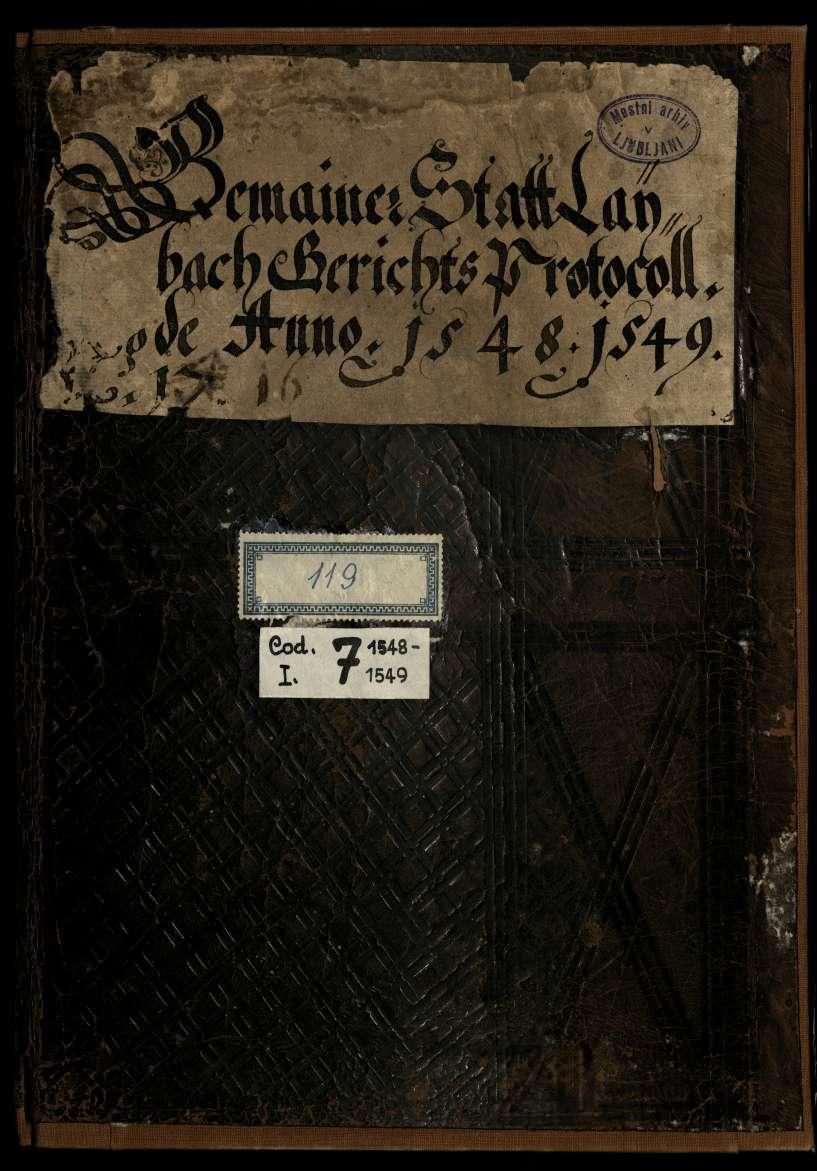 Mestni arhiv
v
LJUBLJANI
Gemainer Statt Lay„
bach Gerichts Protocoll.
de Anno. 1548. 1549.
16
119
Cod. 7 1548-
I. 1549